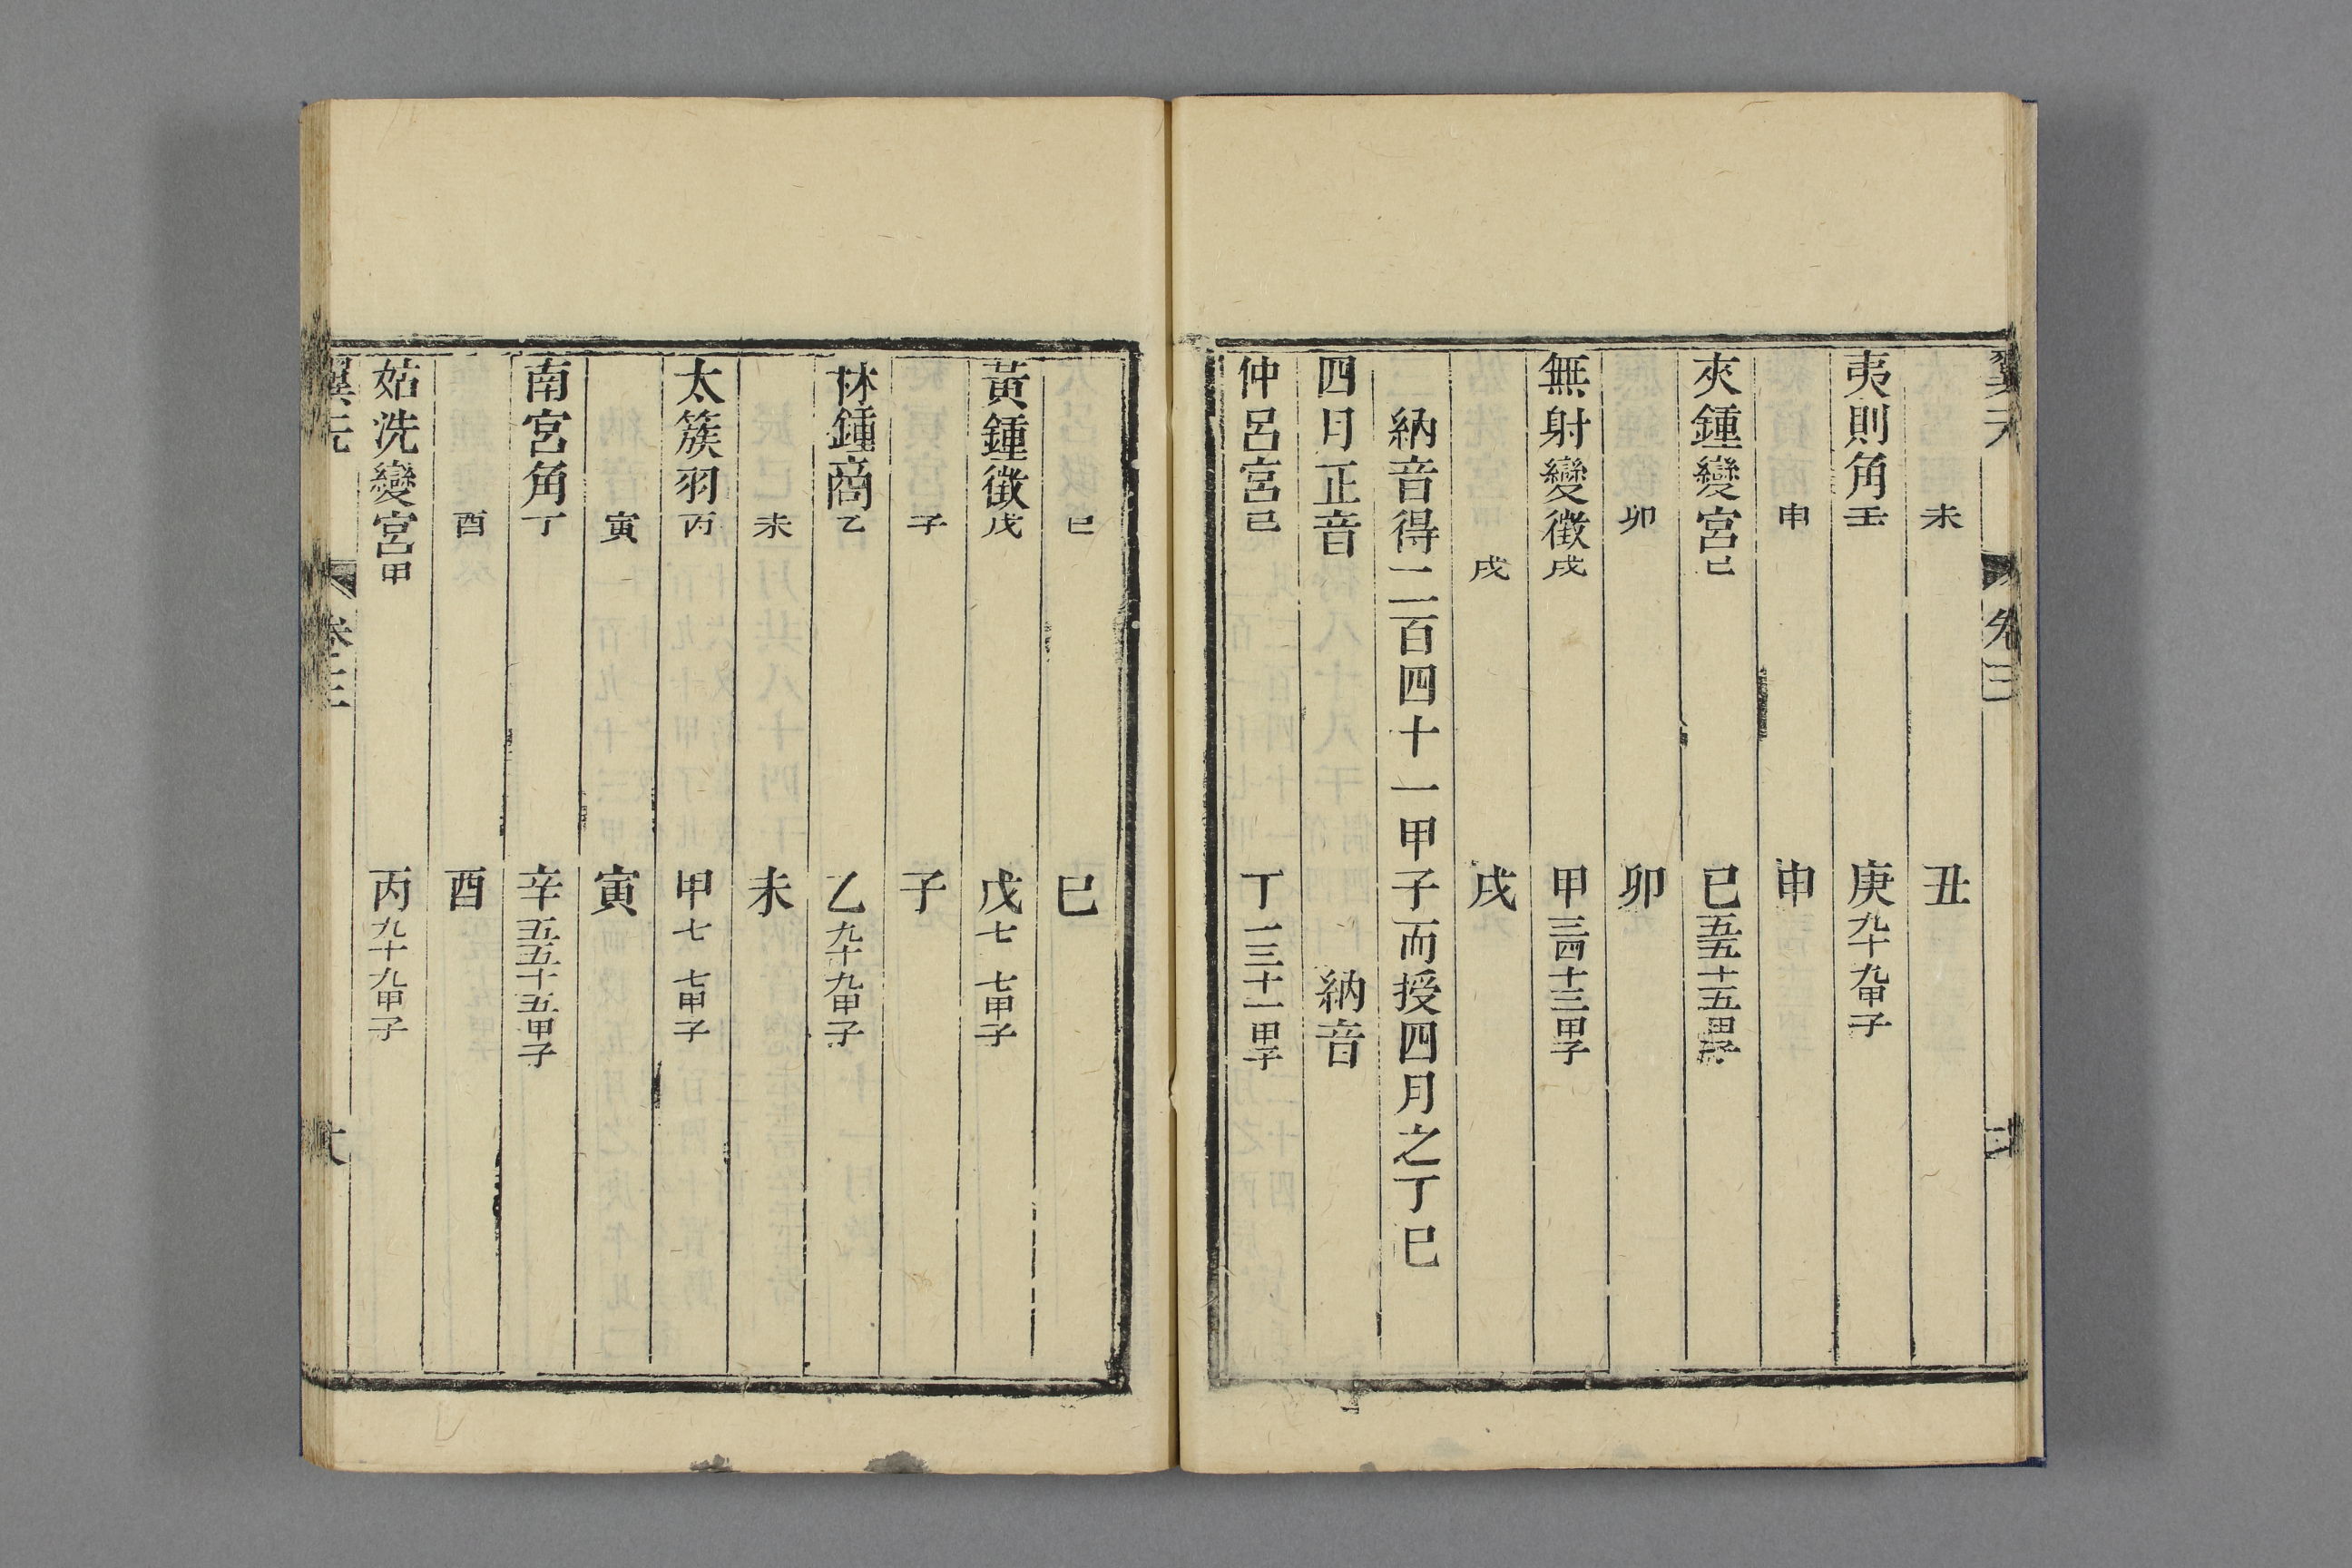 翼元 卷三
未 丑
夷則角壬 庚九十九甲子
申 申
夾鍾變宮己 己五五十五甲子
卯 卯
無射變徵戊 甲三四十三甲子
戌 戌
納音得二百四十一甲子而授四月之丁巳
四月正音 納音
仲呂宮己 丁一三十一甲子
巳 巳
黃鍾徵戊 戊七七甲子
子 子
林鍾商乙 乙九十九甲子
未 未
太簇羽丙 甲七七甲子
寅 寅
南宮角丁 辛五五十五甲子
酉 酉
姑洗變宮甲 丙九十九甲子
翼元 卷三